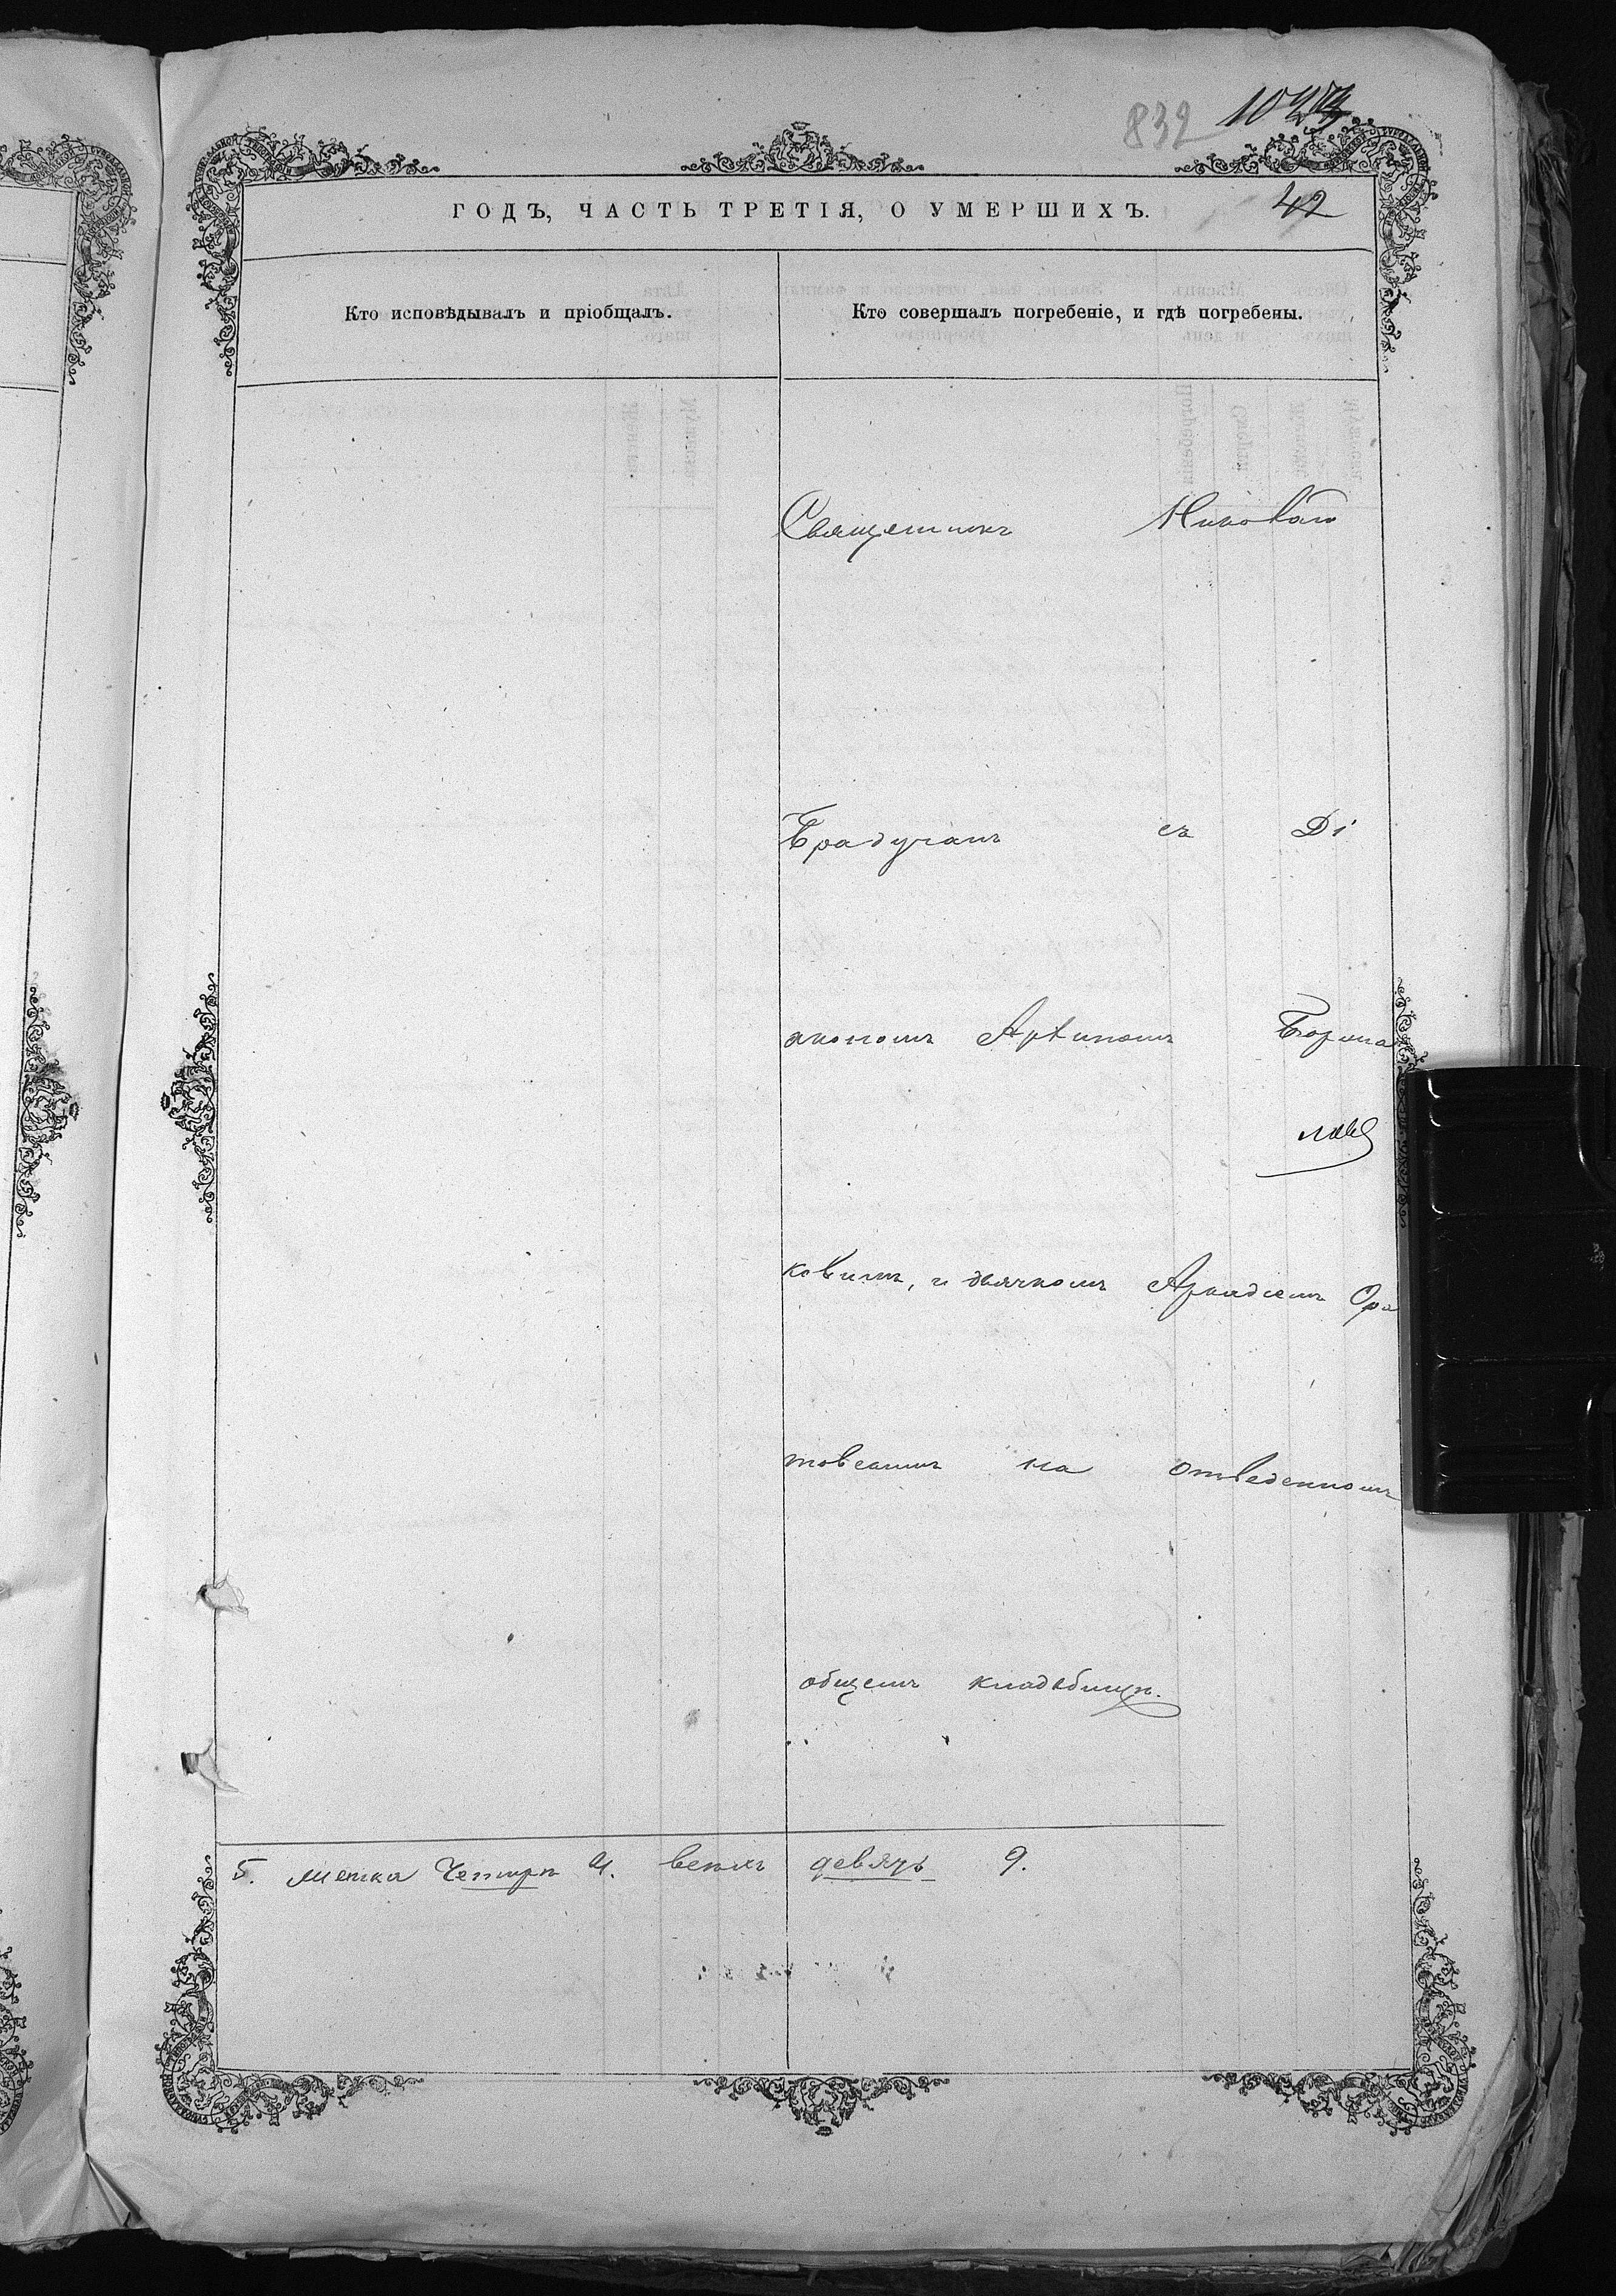 832 1023
ГОДЪ, ЧАСТЬ ТРЕТІЯ, О УМЕРШИХЪ. 42
Кто исповѣдывалъ и пріобщалъ.
Кто совершалъ погребеніе, и гдѣ погребены.
Священникъ Николай
Брадучанъ съ Ді
акономъ Бори
ковымъ, и дьячкомъ Аркадіемъ Ора
товскимъ на отведенномъ
общемъ кладбищѣ.
5. женска Четыре 4. всѣхъ девять 9.